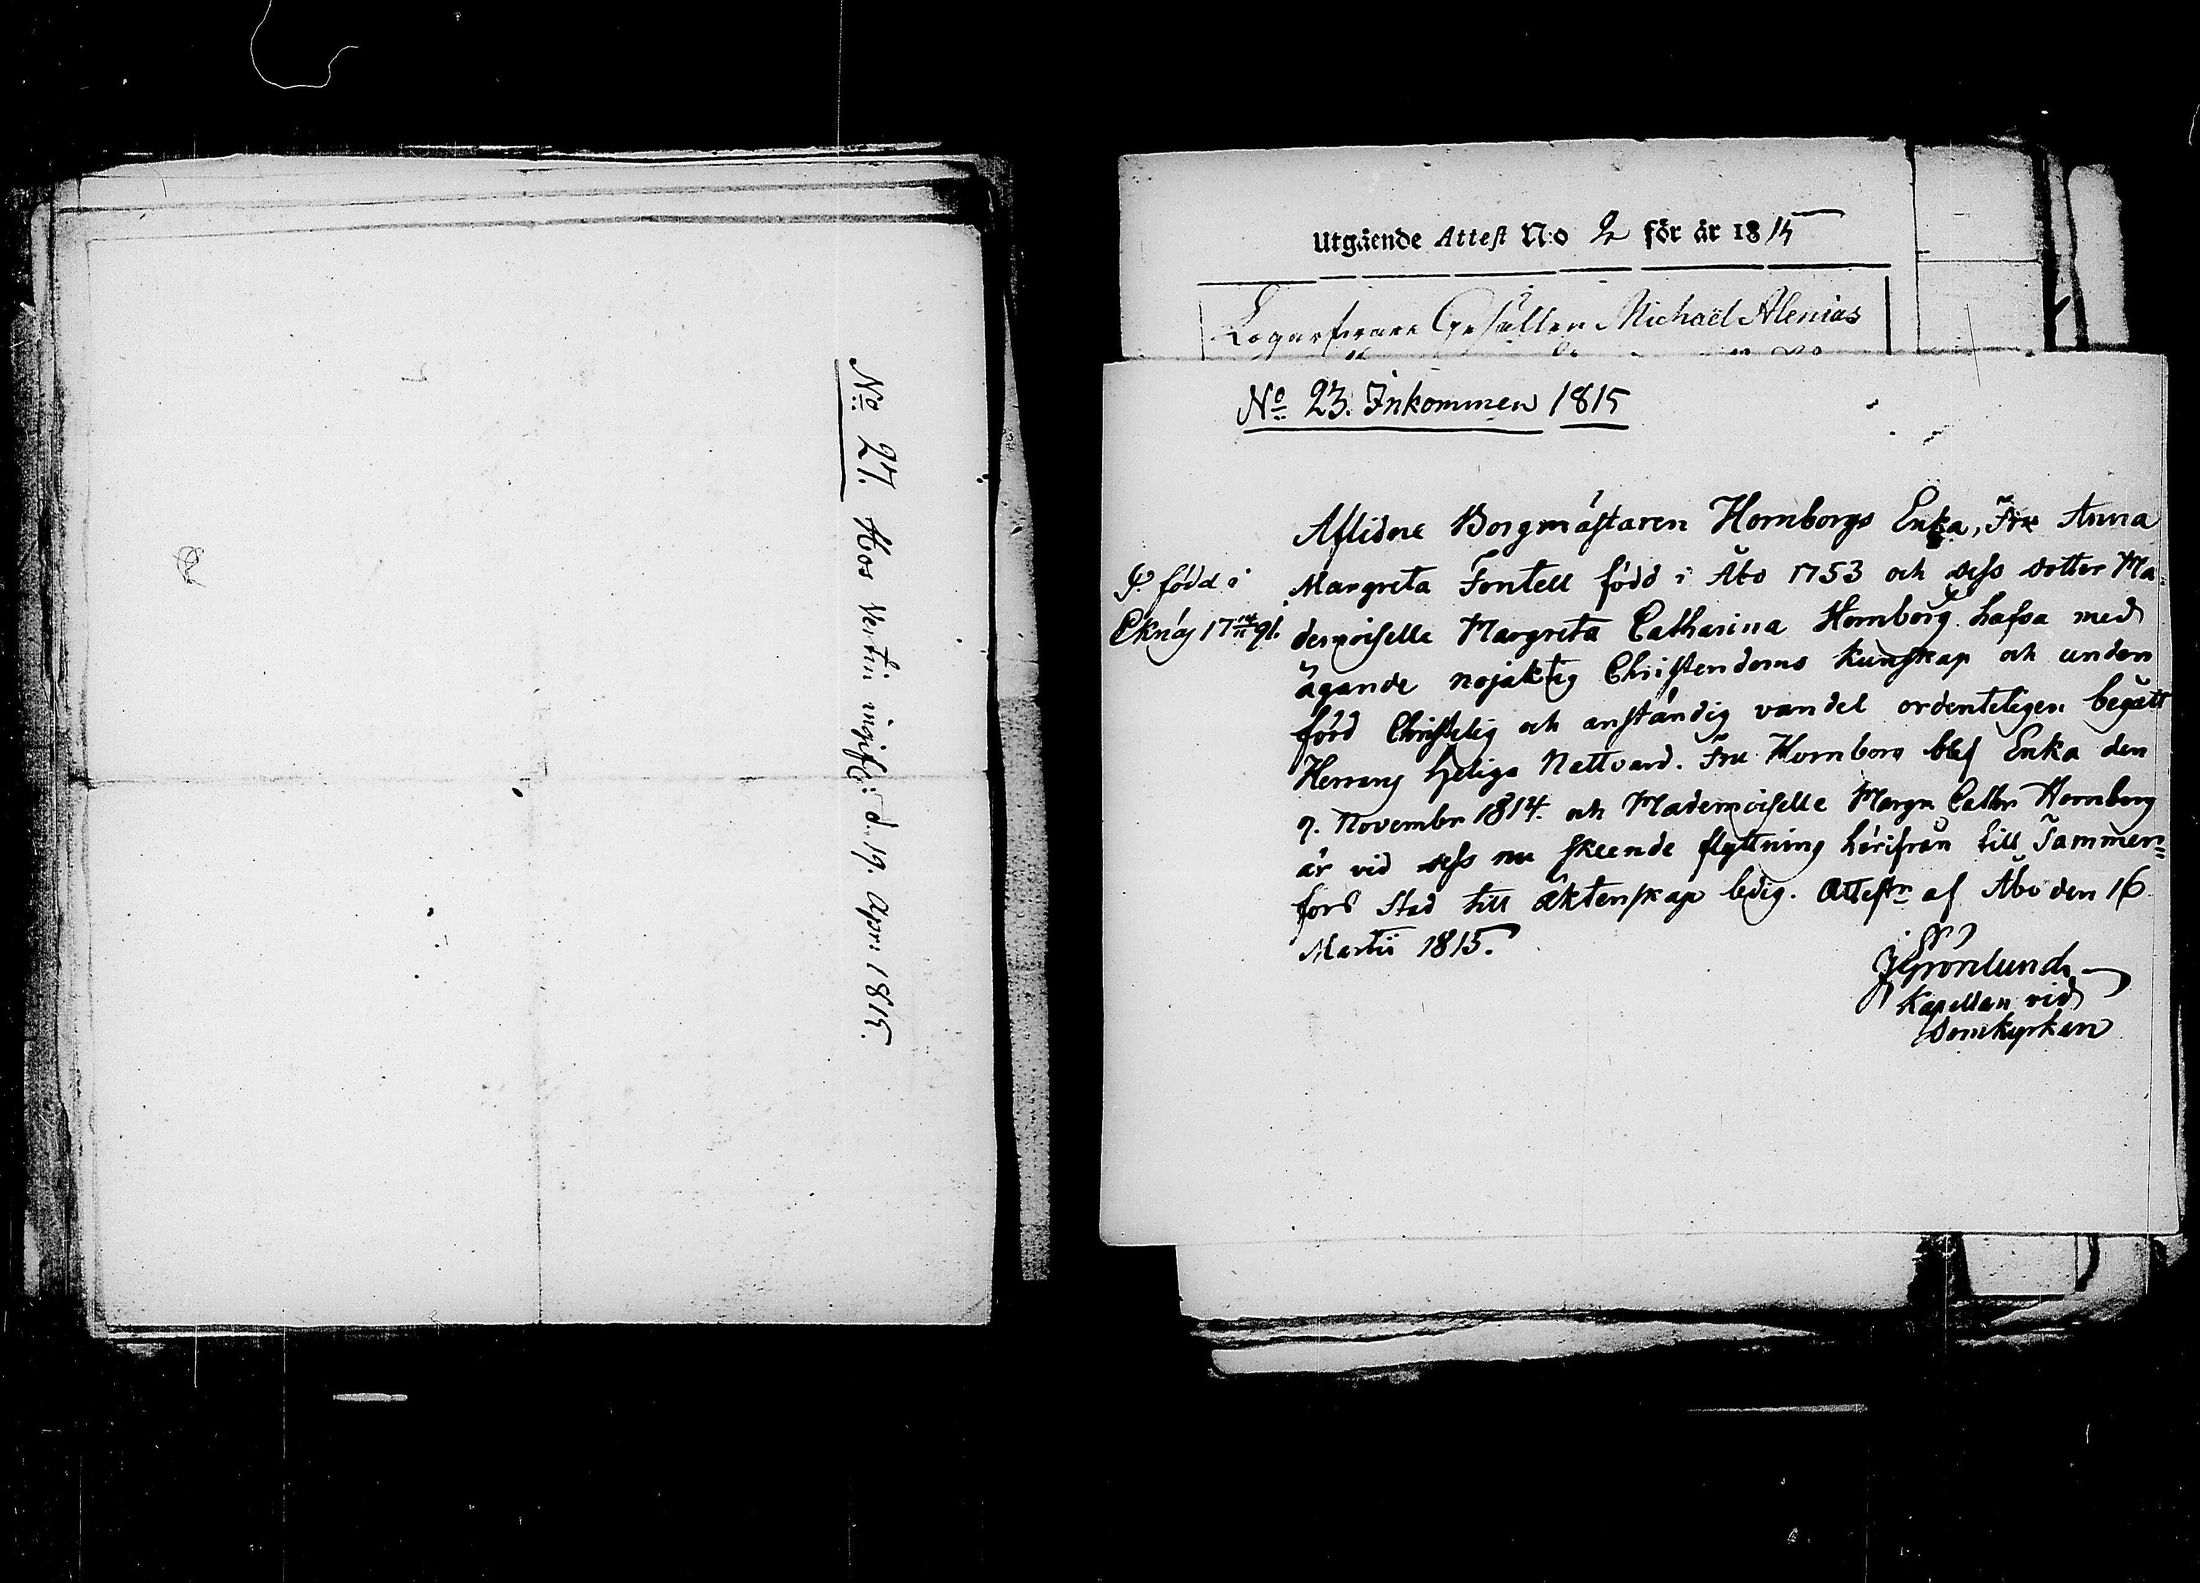 No 27. Hos Vertin ingift: d. 19. Apr: 1815.
Utgående Attest N:o 2 för år 1815
Gesällen Michaël Alenius
No 23. Inkommen 1815
Aflidne Borgmästaren Hornborgs Enka, Fru Anna
Margreta Fontell född i Åbo 1753 och dess dotter Ma-
demoiselle Margreta Catharina Hornborg hafva med
ägande nöjaktig Christendoms kunskap och under
förd Christelig och anständig vandel ordenteligen begått
Herrans Heliga Nattvard. Fru Hornborg blef Enka den
9. Novembr 1814. och Mademoiselle Margr Cathr Hornborg
är vid dess nu skeende flyttning härifrån till Tammer=
fors Stad till äktenskap ledig. Attestr af Åbo den 16
Martii 1815.
född i
Eknäs 17 91.
J Grönlund
Kapellan vid
Domkyrkan